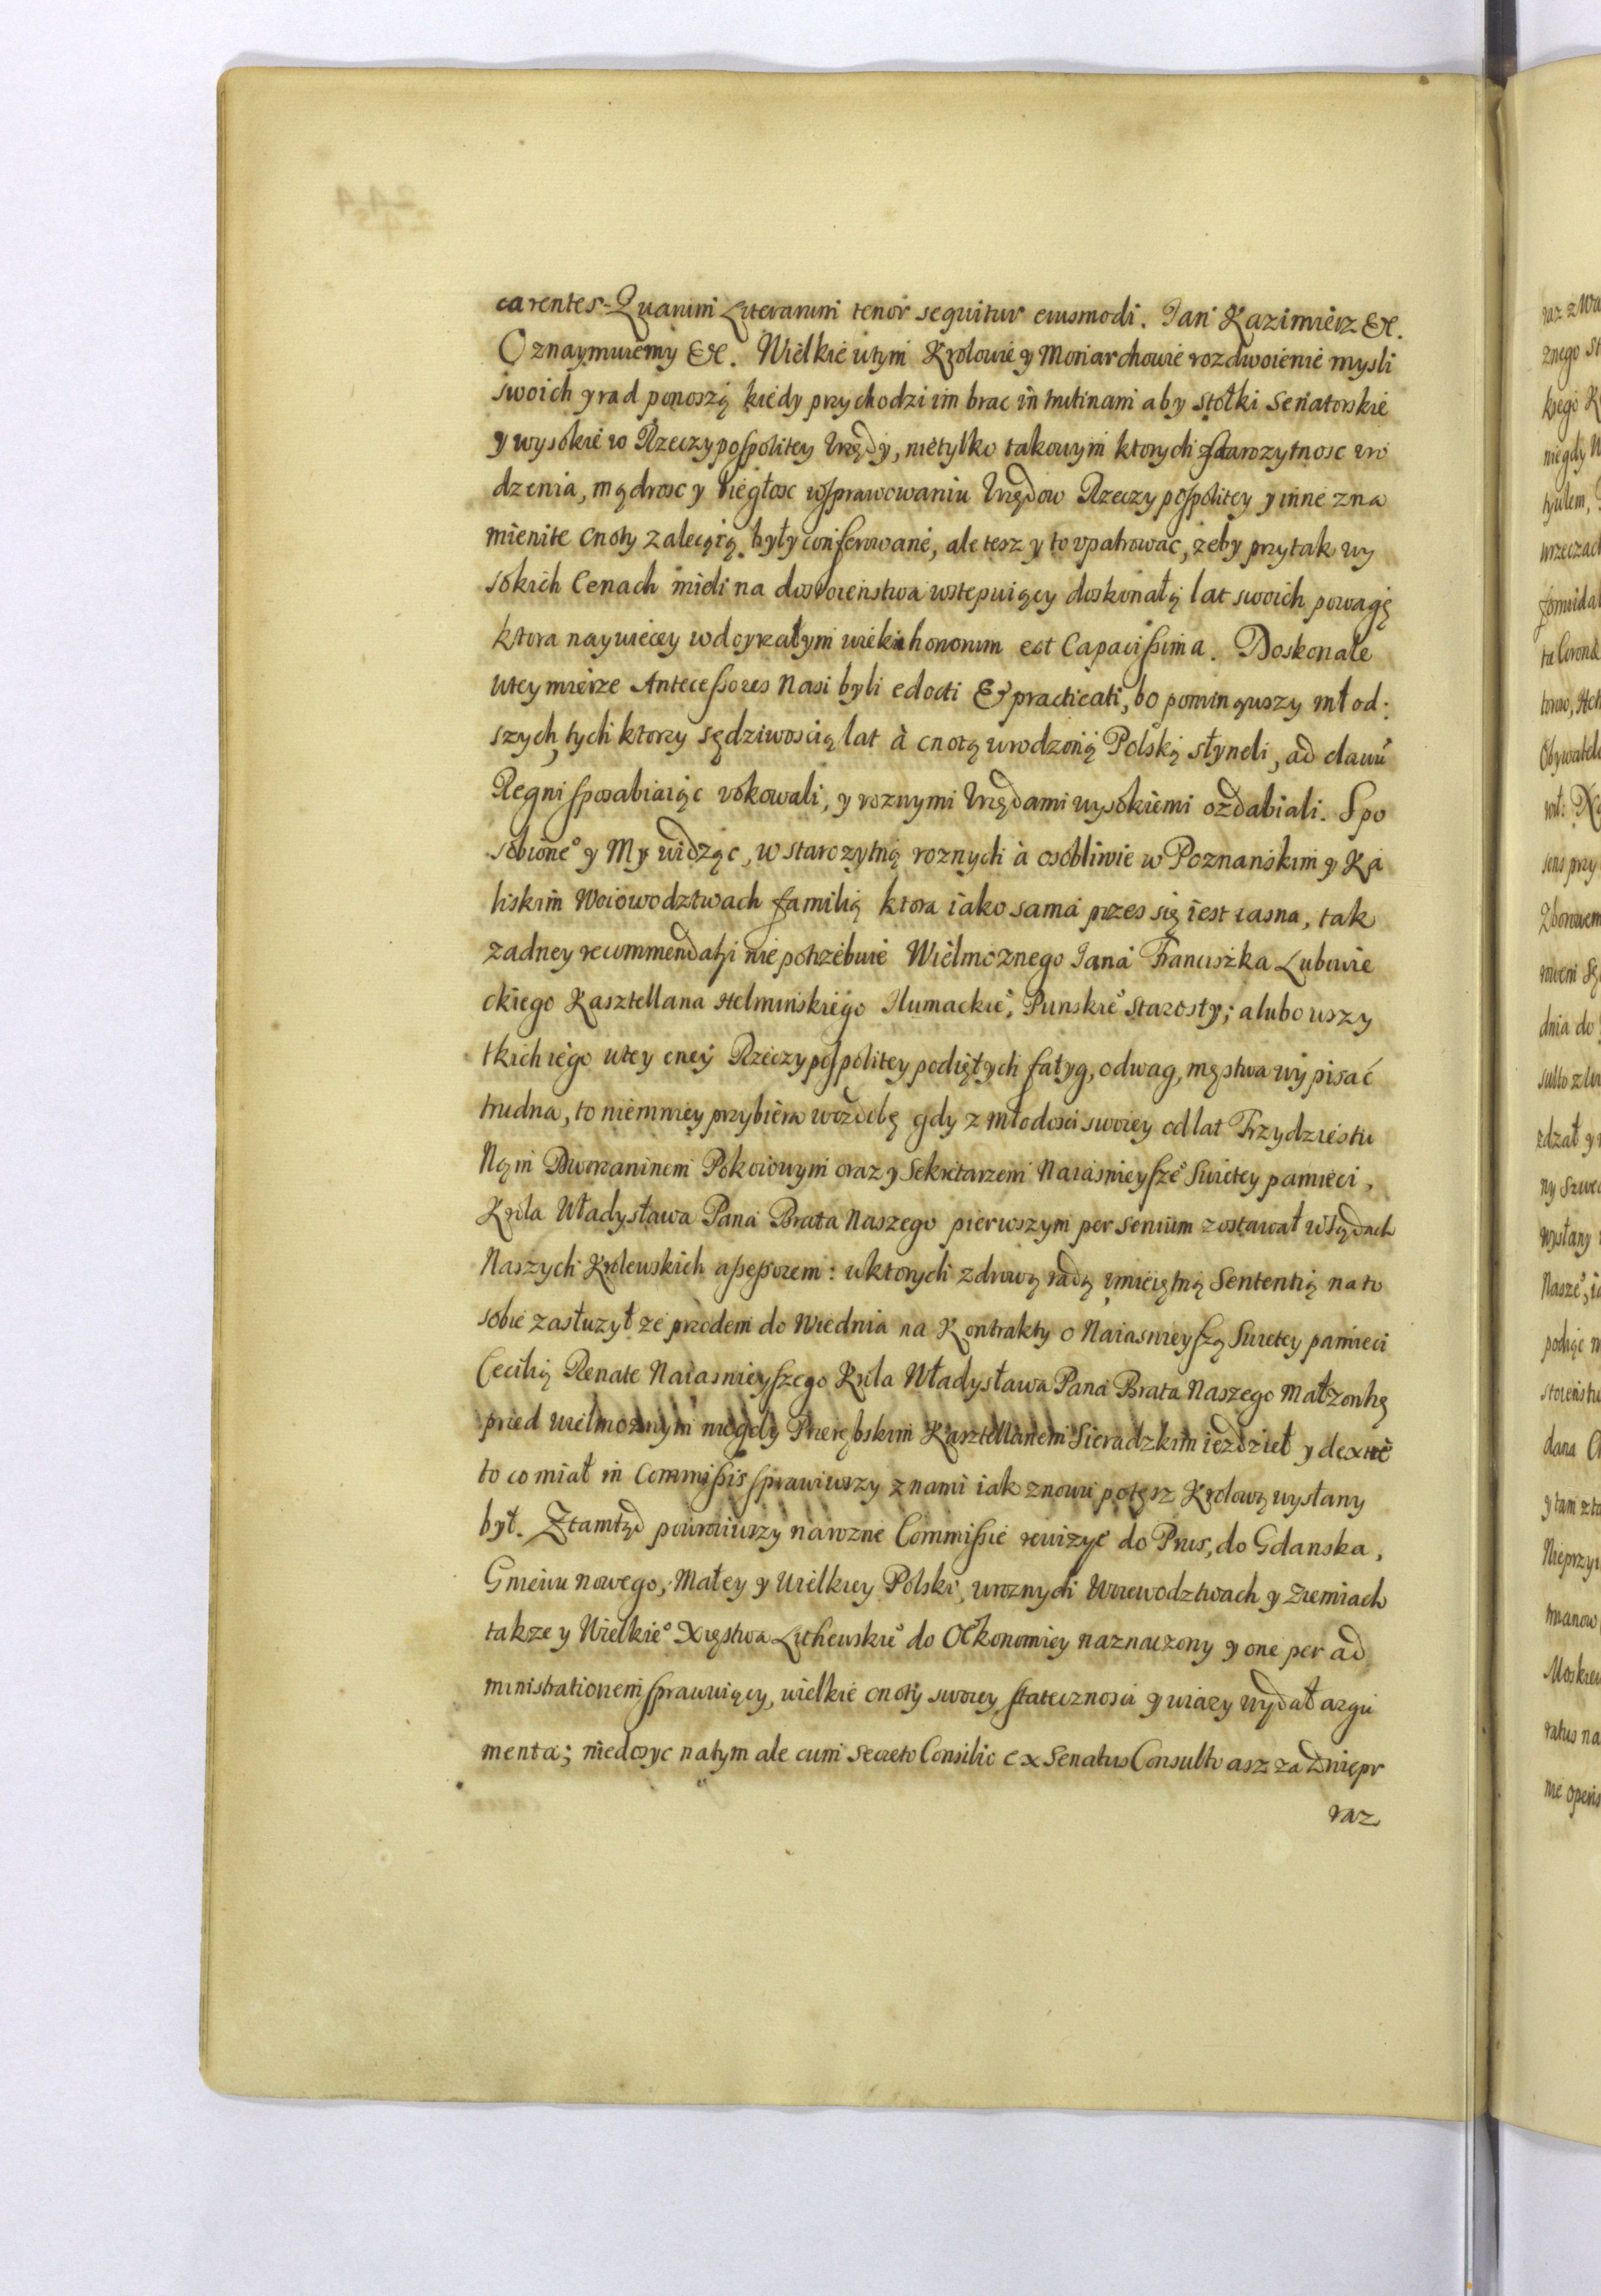 carentes. Quarum Literarum tenor sequitur eiusmodi. Jan Kazimierz &c.
Oznaymuiemy &c. Wielkie wtym Krolowie y Monarchowie rozdwoienie mysli
swoich y rad ponoszą kiedy przychodzi im brac in trutinam aby stołki Senatorskie
y wysokie w Rzeczypospolitey Urzędy, nietylko takowym ktorych starozytnosc vro
dzenia, mądrosc y biegłosc w sprawowaniu Urzędow Rzeczypospolitey y inne zna
mienite cnoty zalecaią były conferowane, ale tesz y to vpatrowac, zeby przy tak wy
sokich Cenach mieli na dostoienstwa wstepuiący doskonałą lat swoich powagę
ktora naywiecey w doyrzałym wieku honorum est Capacissima. Doskonale
wtey mierze Antecessores Nasi byli edocti & practicati, bo pominąwszy młod:
szych, tych ktorzy sędziwoscią lat à cnotą wrodzoną Polską słyneli, ad clavū
Regni sposabiaiąc vokowali, y roznymi Urzędami wysokiemi ozdabiali. Spo
sobione° y My widząc, w starozytną roznych à osobliwie w Poznańskim y Ka
liskim Woiowodztwach familią ktora iako sama przes się iest iasna, tak
zadney recommendatyi nie potrzebuie Wielmoznego Jana Franciszka Lubowie
ckiego Kasztellana Helminskiego Tlumackie°, Punskie° Starosty; a lubo wszy
tkich iego wtey eney Rzeczypospolitey podiętych fatyg, odwag, męstwa wypisać
trudna, to niemniey przybiera w ozdobę gdy z młodosci swoiey od lat Trzydziestu
Nąm Dworzaninem Pokoiowym oraz y Sekretarzem Naiasnieysze° Swietey pamieci,
Krola Władysława Pana Brata Naszego pierwszym per senium zostawał w Sądach
Naszych Krolewskich assessorem: w ktorych zdrową radą vmieiętną Sententią na to
sobie zasłuzył ze przodem do Wiednia na Kontrakty o Naiasnieyszą Swietey pamieci
Cecilią Renate Naiasnieyszego Krola Władysława Pana Brata Naszego Małzonkę
przed wielmoznym niegdy Przerębskim Kasztellanem Sieradzkim iezdzieł y dextrè
to co miał in Commissis sprawiwszy z nami iak znowu po tęsz Krolową wysłany
był. Ztamtąd powrociwszy na rozne Commissie rewizye do Prus, do Gdanska,
Gniewu nowego, Małey y Wielkiey Polski, w roznych Woiewodztwach y Ziemiach
takze y Wielkie° Xięstwa Lithewskie° do Oekonomiey naznaczony y one per ad
ministrationem sprawuiący, wielkie cnoty swoiey, statecznosci y wiary wydał argu
menta; niedosyc natym ale cum Secreto Consilio ex Senatus Consulto asz za Dniepr
raz